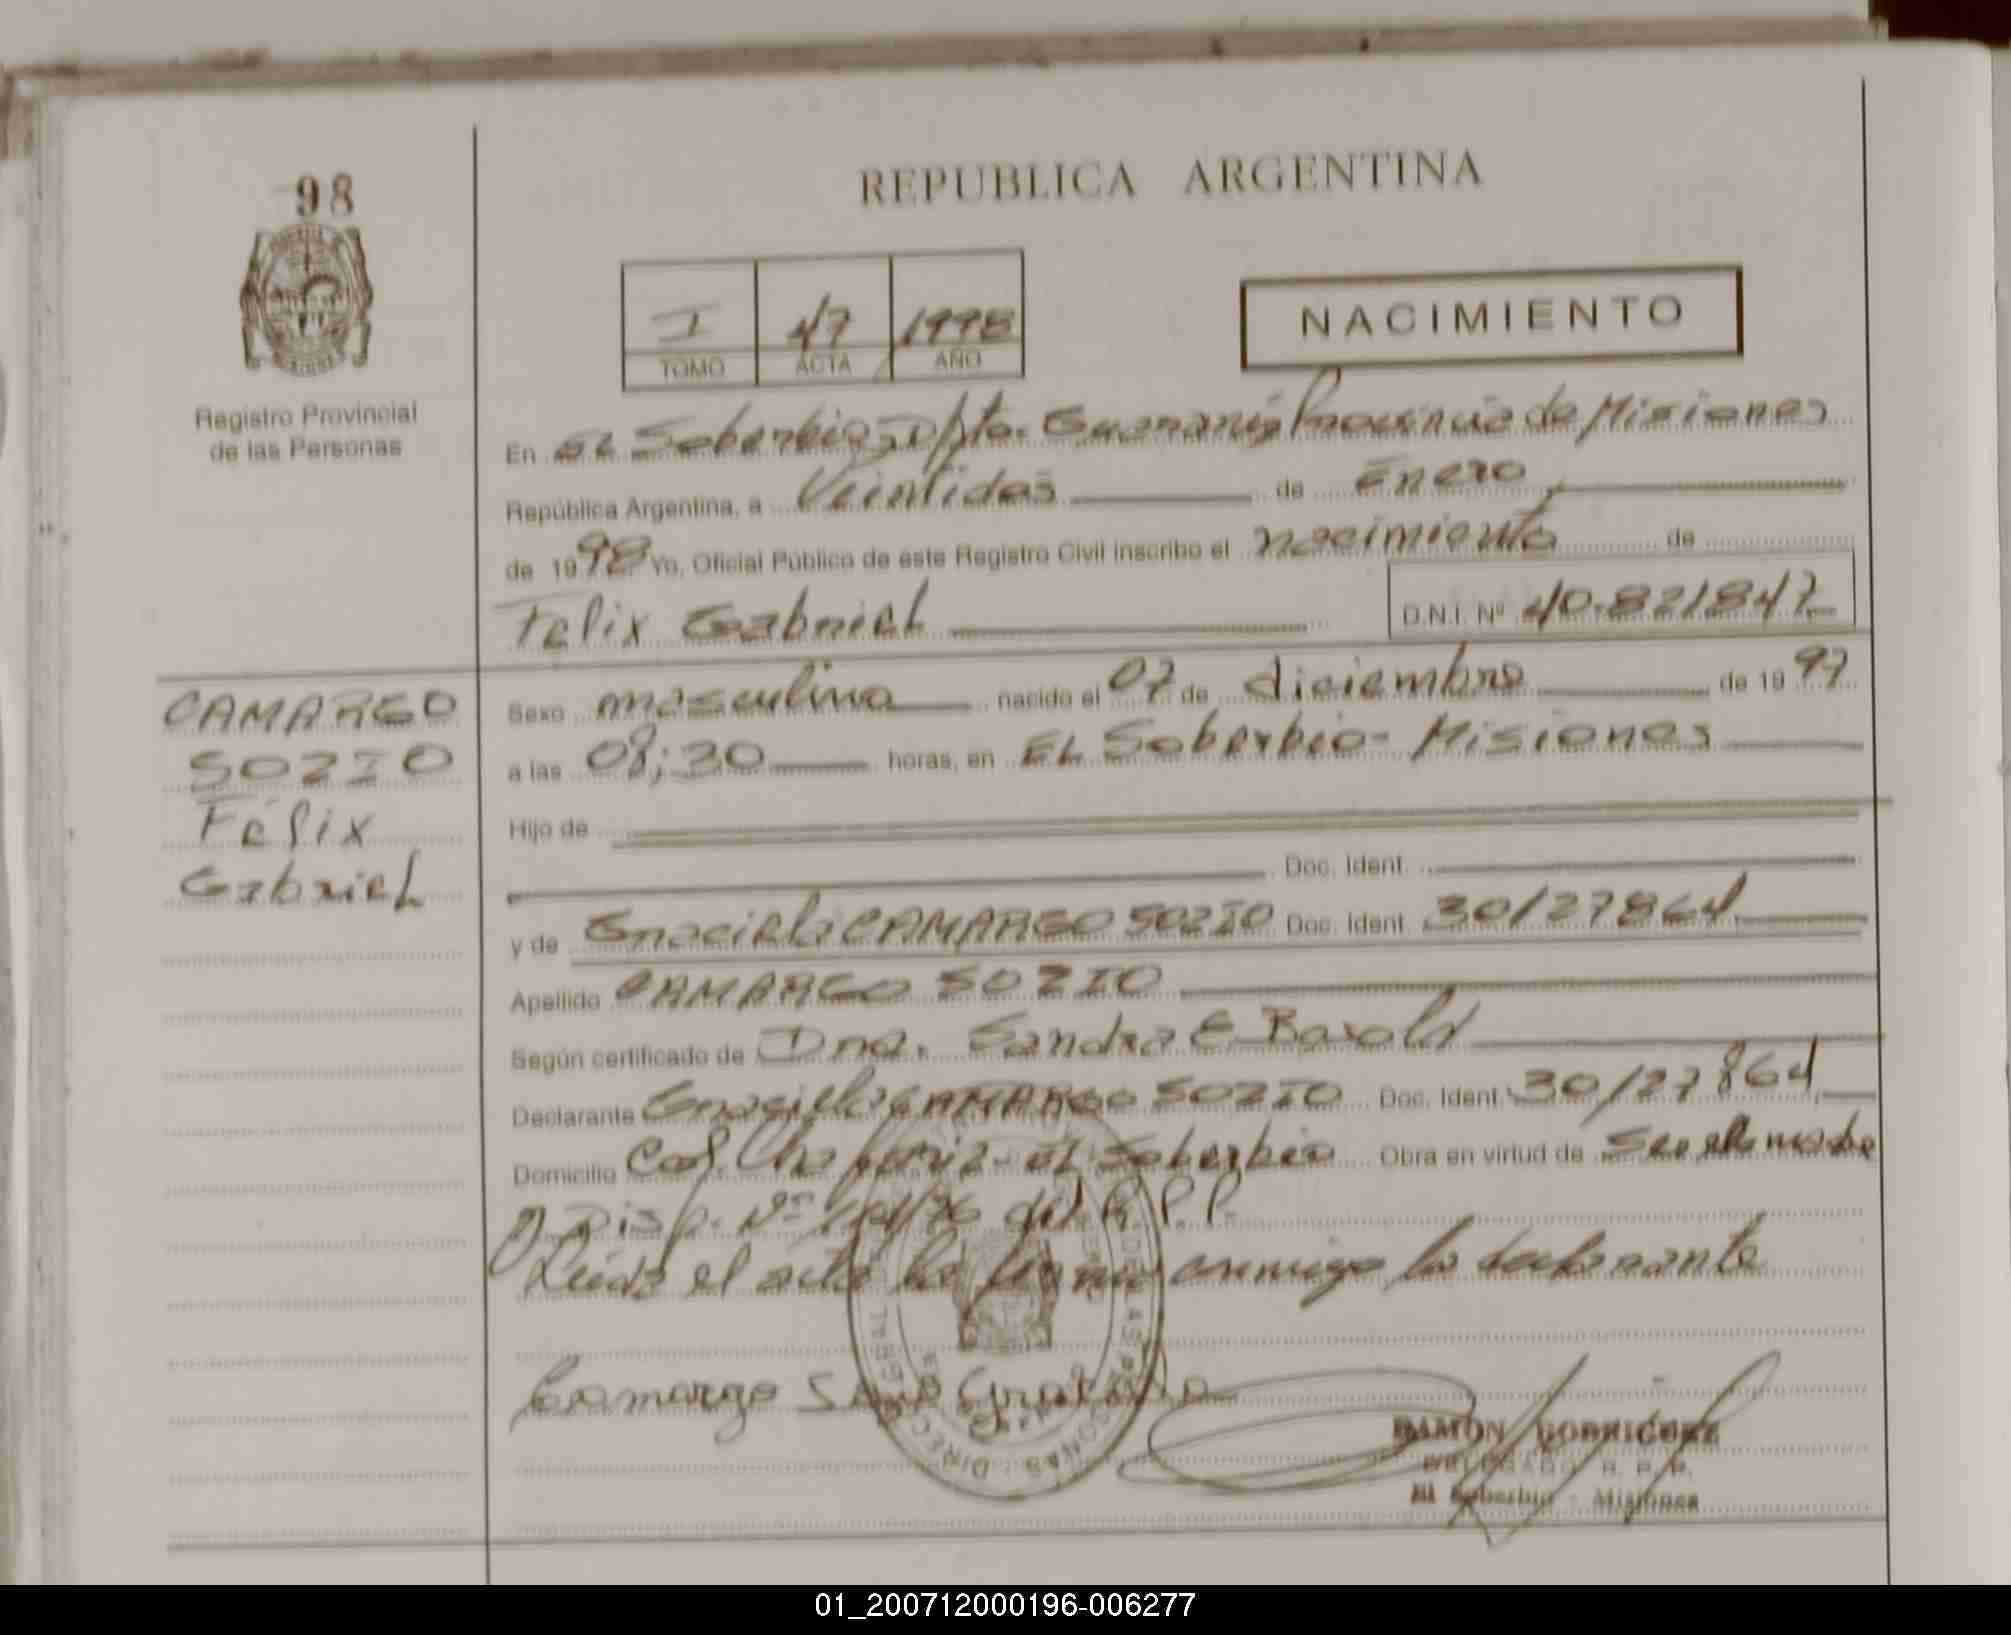 98
REPUBLICA ARGENTINA
I 47 1998
TOMO ACTA AÑO
NACIMIENTO
Registro Provincial
de las Personas
En El Soberbio, Dpto. Guaraní, Provincia de Misiones
República Argentina, a Veintidos de Enero
de 1998 Yo, Oficial Público de este Registro Civil inscribo el nacimiento de
Felix Gabriel D.N.I. Nº 40.821847
CAMARGO
SOZIO
Félix
Gabriel
Sexo masculino nacido el 07 de diciembre de 1997
a las 08:30 horas, en El Soberbio - Misiones
Hijo de
Doc. Ident.
y de Graciela CAMARGO SOZIO Doc. Ident. 30127864
Apellido CAMARGO SOZIO
Según certificado de Dra. Sandra E.
Declarante Graciela CAMARGO SOZIO Doc. Ident. 30127864
Domicilio Col. El Soberbio Obra en virtud de Ser la madre
Disp. Nº del R.P.P.
Leida el acta la firma conmigo la declarante
Camargo
RAMON RODRIGUEZ
DELEGADO R. P. P.
El Soberbio - Misiones
01_200712000196-006277